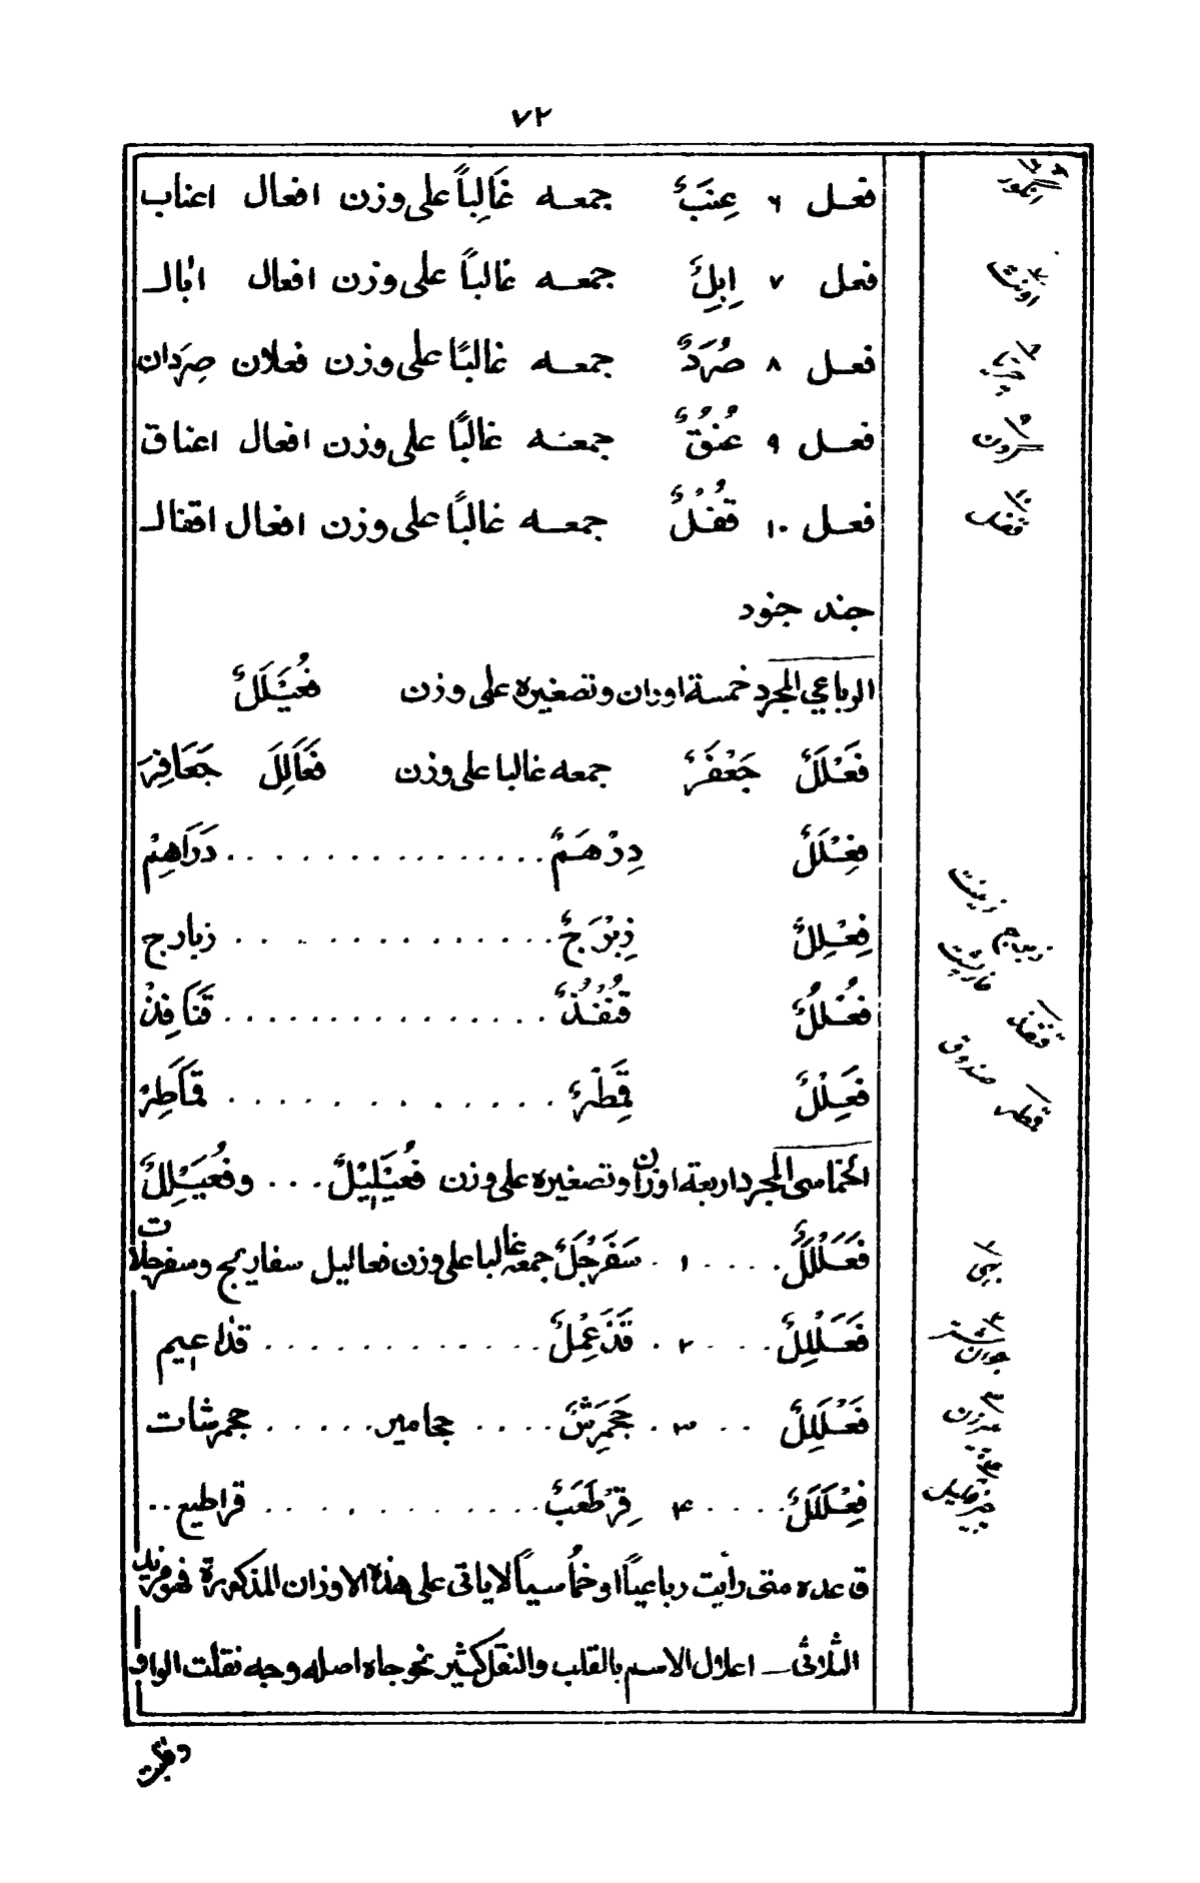 ٧٢
فعل ٦ عِنَبٌ جمعه غَالِباً على وزن افعال اعناب
فعل ٧ اِبِلٌ جمعه غالباً على وزن افعال اٰبال
فعل ٨ صُرَدٌ جمعه غالبًا على وزن فعلان صِرَدان
فعل ٩ عُنُقٌ جمعه غالبًا على وزن افعال اعناق
فعل ١٠ قُفْلٌ جمعه غالبًا على وزن افعال اقفال
جند جنود
الرباعي المجرد خمسة اوزان وتصغيره على وزن فُعَيْلَلٌ
فَعْلَلٌ جَعْفَرٌ جمعه غالبا على وزن فَعَالِلَ جَعَافِرَ
فِعْلَلٌ دِرْهَمٌ . . . . . . . . . . . . دَرَاهِمْ
فِعْلِلٌ زِبْرَجٌ . . . . . . . . . . . . زبارج
فُعْلُلٌ قُنْفُذٌ . . . . . . . . . . . . قَنَافِذْ
فِعَلْلٌ قِمَطْرٌ . . . . . . . . . . . . قَمَاطِرْ
الخماسى المجرد اربعة اوزان وتصغيره على وزن فُعَيْلِيْلٌ . . . وفُعَيْلِلٌ
فَعَلْلَلٌ . . . . ١ . سَفَرْجَلٌ جمعه غالبا على وزن فعاليل سفاريج وسفرجلات
فَعَلْلِلٌ . . . ٢ . قَذَعْمِلٌ . . . . . . . . . . . قذاعيم
فَعْلَلِلٌ . . ٣ . جَحْمَرِشٌ . . . . جحامير . . . . . جحمرشات
فِعْلَلَلٌ . . . . ٤ قِرْطَعَبٌ . . . . . . . . . . . قراطيع . .
قاعده متى رأيت رباعياً او خُماسياً لا ياتى على هذه الاوزان المذكورة فهو مزيد
الثلاثى ـ اعلال الاسم بالقلب والنقل كثير نحو جاه اصله وجه نقلت الواو
انگور
اونت
چڑیا
گردن
قفل
زینت
خارپشت
قنفذ
صندوق
قمطر
بہی